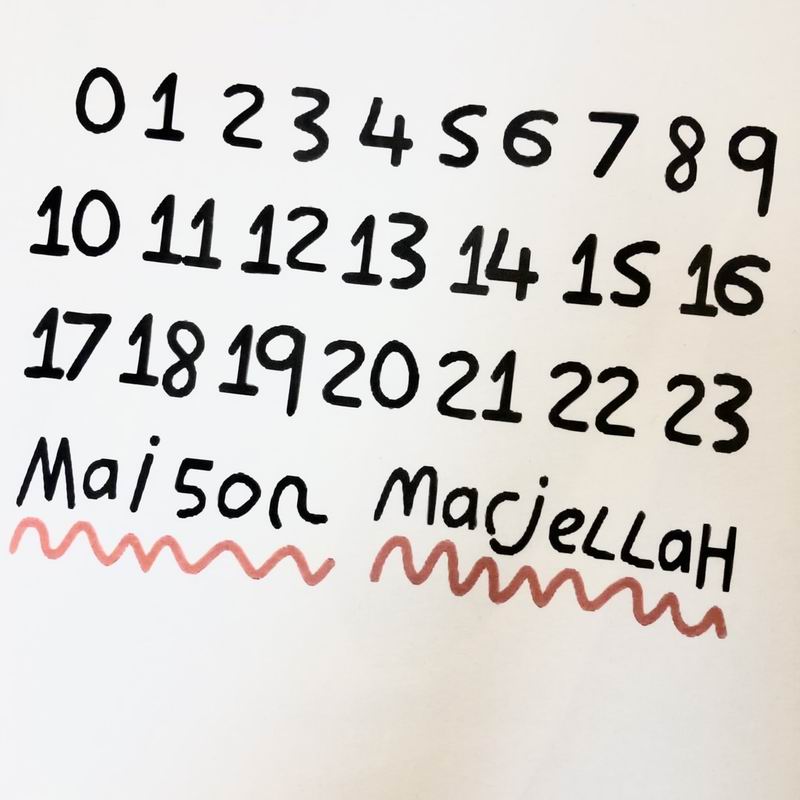 0 1 2 3 4 5 6 7 8 9
10 11 12 13 14 15 16
17 18 19 20 21 22 23
Maison MarjeLLaH